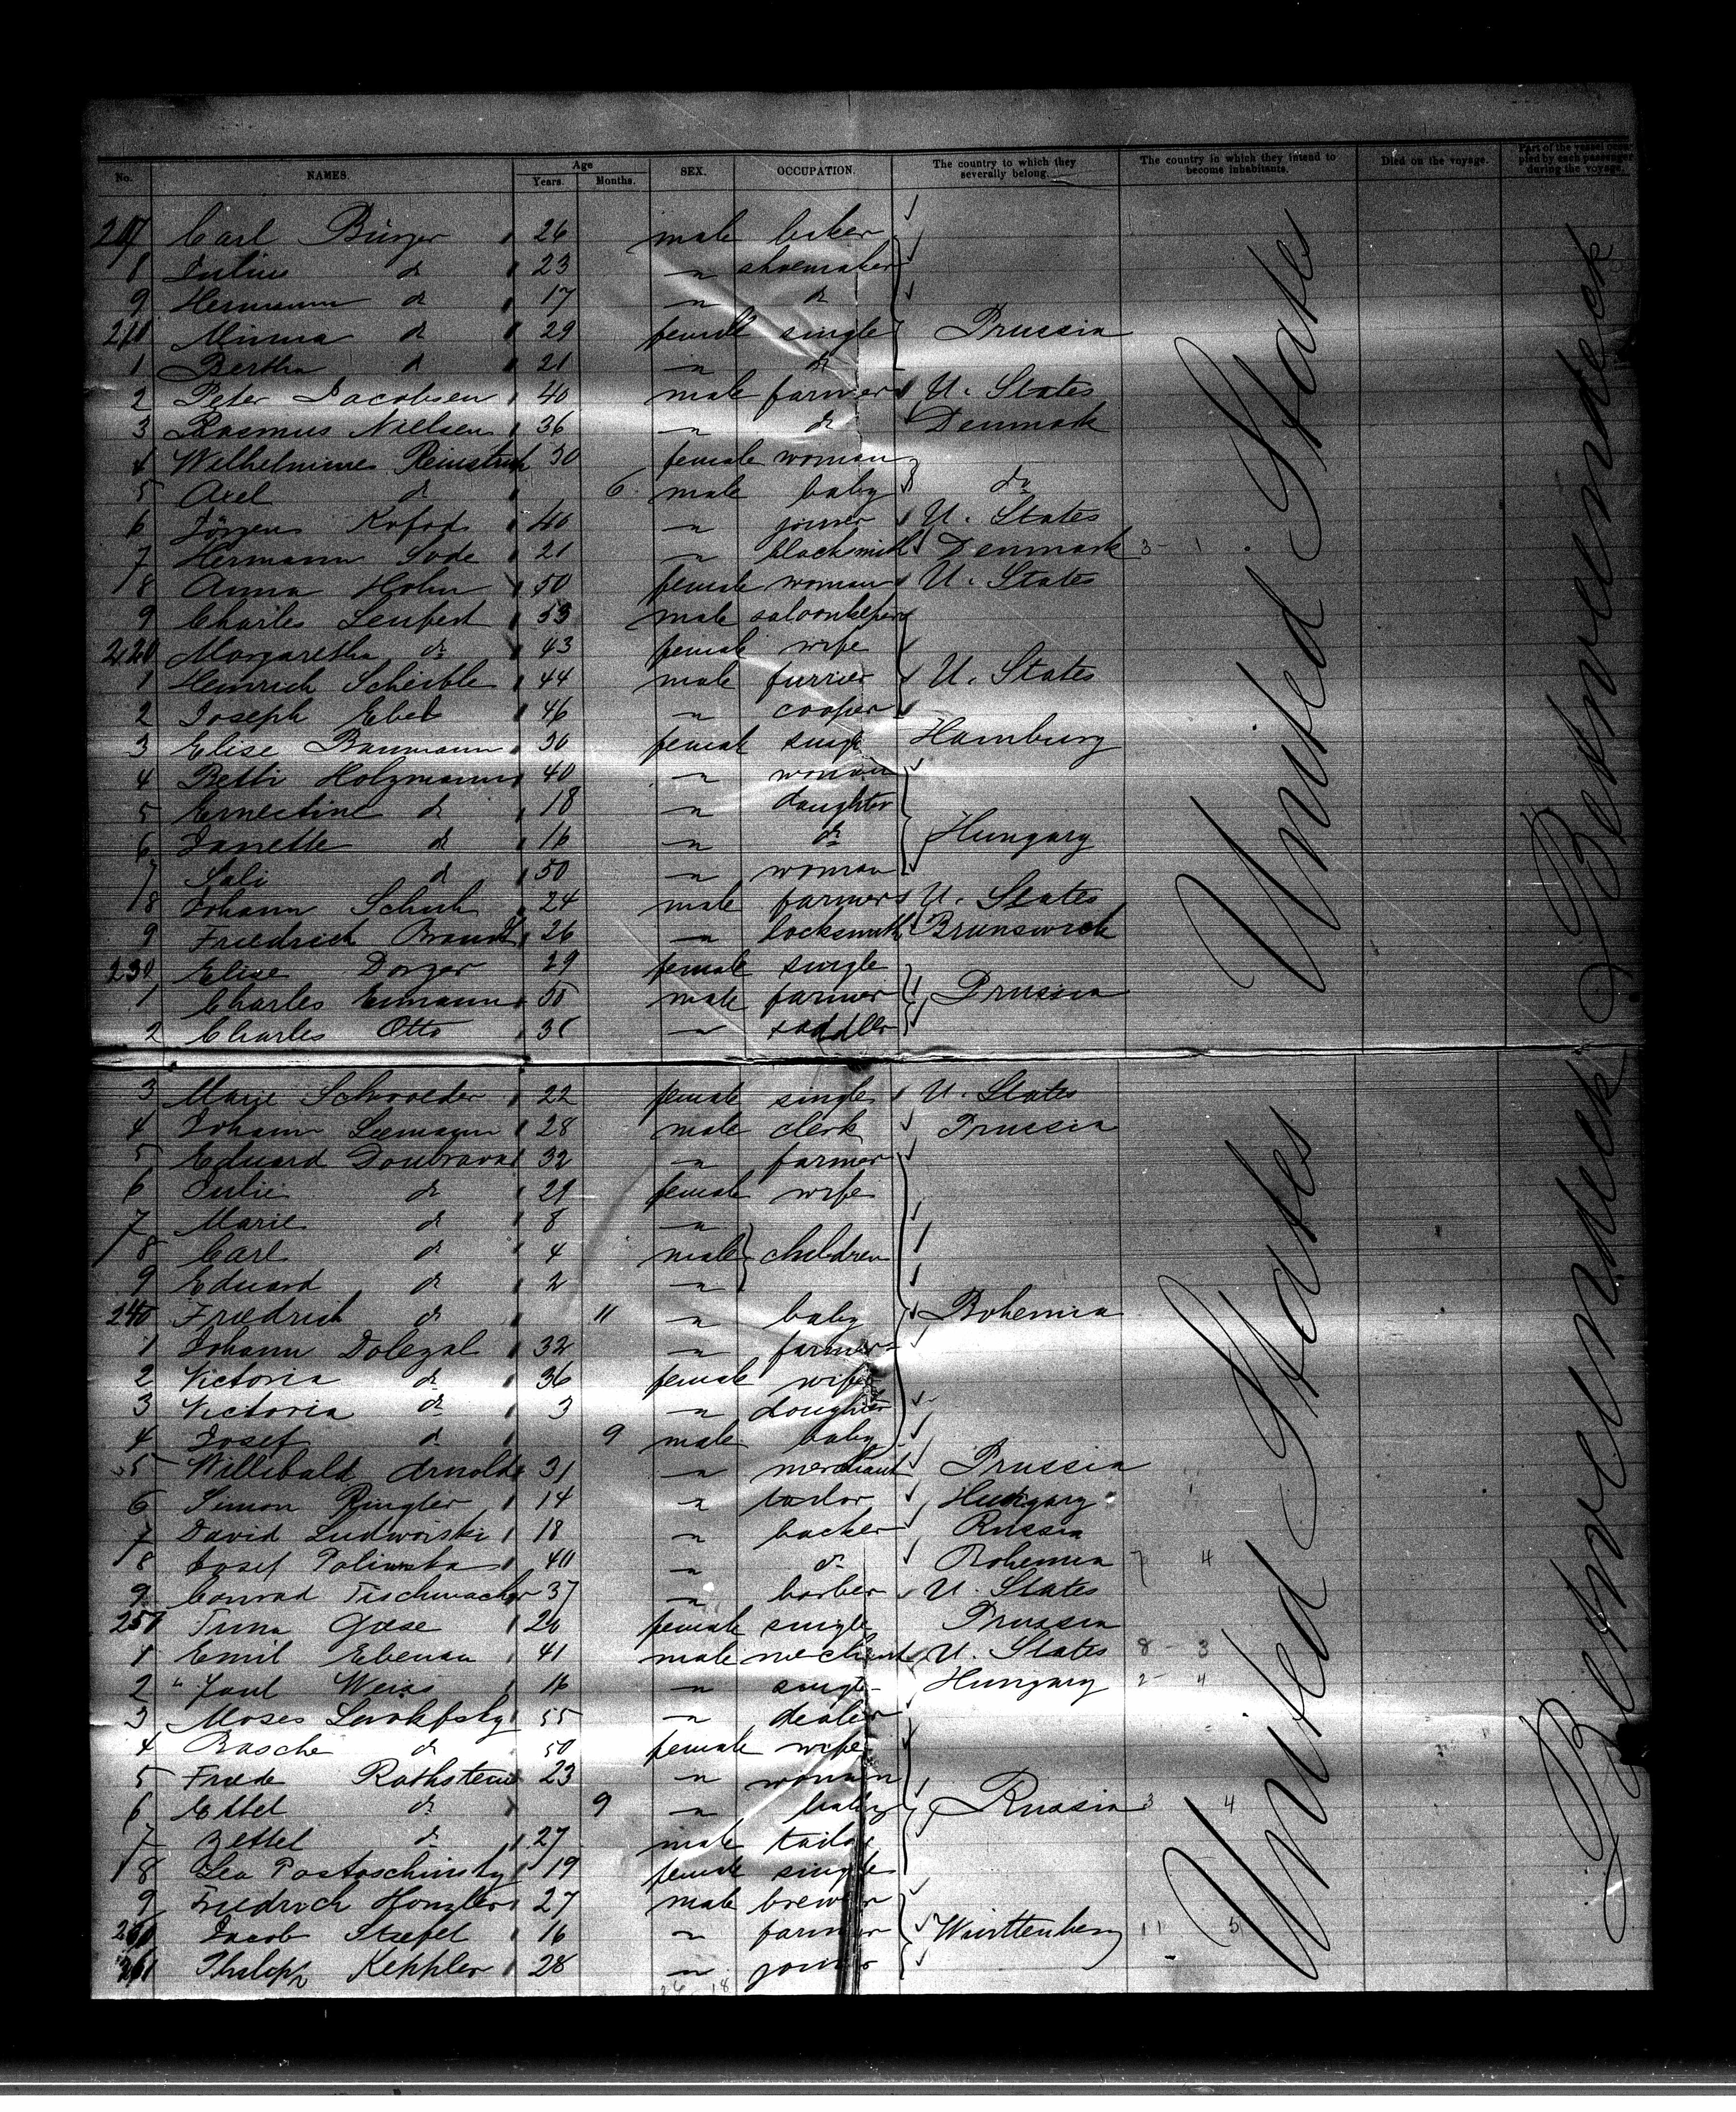 No. NAMES. Age Years. Months. SEX. OCCUPATION. The country to which they severally belong. The country in which they intend to become inhabitants. Died on the voyage. Part of the vessel occupied by each passenger during the voyage.
207 Carl Bürger 26 male baker
8 Julius do 23 " shoemaker
9 Hermann do 17 " do
210 Minna do 29 female single Prussia
1 Bertha do 21 " do
2 Peter Jacobsen 40 male farmer U. States
3 Rasmus Nielsen 36 " do Denmark
4 Wilhelmine 30 female woman
5 Axel do 6 male baby do
6 Jörgen Kofod 40 " joiner U. States
7 Hermann Sode 21 " blacksmith Denmark 3 - 1
8 Anna Holm 50 female woman U. States
9 Charles Leupert 53 male saloonkeeper
220 Margaretha do 43 female wife
1 Heinrich Scheible 44 male furrier U. States
2 Joseph Ebel 46 " cooper
3 Elise Baumann 30 female single Hamburg
4 Betti Holzmann 40 " woman
5 Ernestine do 18 " daughter
6 Janette do 16 " do Hungary
7 Sali do 50 " woman
8 Johann Schuh 24 male farmer U. States
9 Friedrich Brandt 26 " locksmith Brunswick
230 Elise Dorger 29 female single
1 Charles Emann 55 male farmer Prussia
2 Charles Otto 35 " saddler
3 Marie Schroeder 22 female single U. States
4 Johann Leemann 28 male clerk Prussia
5 Eduard Doubrava 32 " farmer
6 Julie do 29 female wife
7 Marie do 8 "
8 Carl do 4 male children
9 Eduard do 2 "
240 Friedrich do 11 " baby Bohemia
1 Johann Dolezal 32 " farmer
2 Victoria do 36 female wife
3 Victoria do 3 " daughter
4 Josef do 9 male baby
5 Willibald Arnold 31 " merchant Prussia
6 Simon Ringler 14 " tailor Hungary
7 David Ludworski 18 " backer Russia
8 Josef Polinska 40 " do Bohemia 7 4
9 Conrad Tischmacher 37 " barber U. States
250 Trina Goese 20 female single Prussia
1 Emil Ebenau 41 male mechant U. States 8 - 3
2 " Paul Weiss 16 " single Hungary 2 - 4
3 Moses 55 " dealer
4 Rasche do 50 female wife
5 Friede Rothstein 23 " woman
6 Ettel do 9 " baby Russia 3 4
7 Zettel do 27 male tailor
8 Lea Postoschinsky 19 female single
9 Friedrich Honzler 27 male brewer
260 Jacob Stefel 16 " farmer Württenberg 11 5
261 Philipp Keppler 28 " joiner
26 18
United States
Betweendeck
United States
Betweendeck